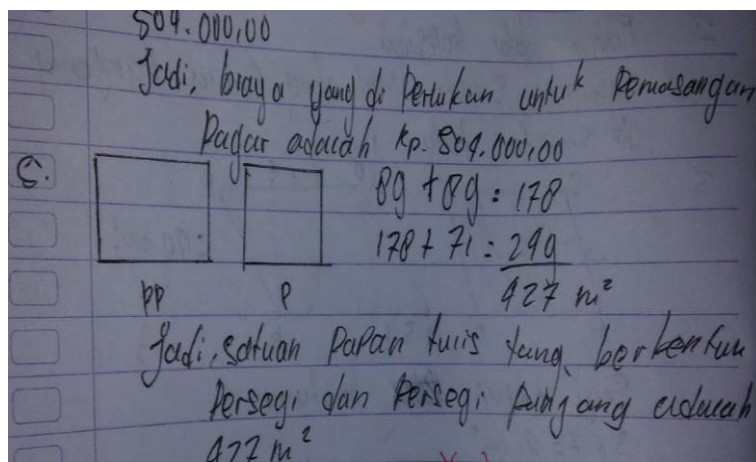 504.000,00
Jadi, biaya yang di Perlukan untuk Pemasangan
Pagar adalah Rp. 504.000,00
5.
89 + 89 = 178
178 + 71 = 249
427 m²
PP P
Jadi, satuan Papan tulis yang berbentuk
Persegi dan Persegi panjang adalah
427 m²